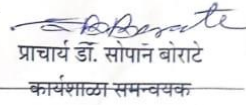 प्राचार्य डॉ. सोपान बोराटे
कार्यशाळा समन्वयक